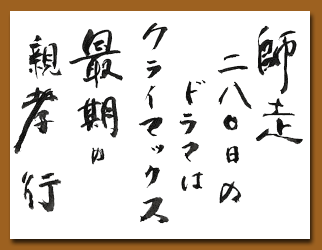 師走
二八〇日の
ドラマは
クライマックス
最期の
親孝行